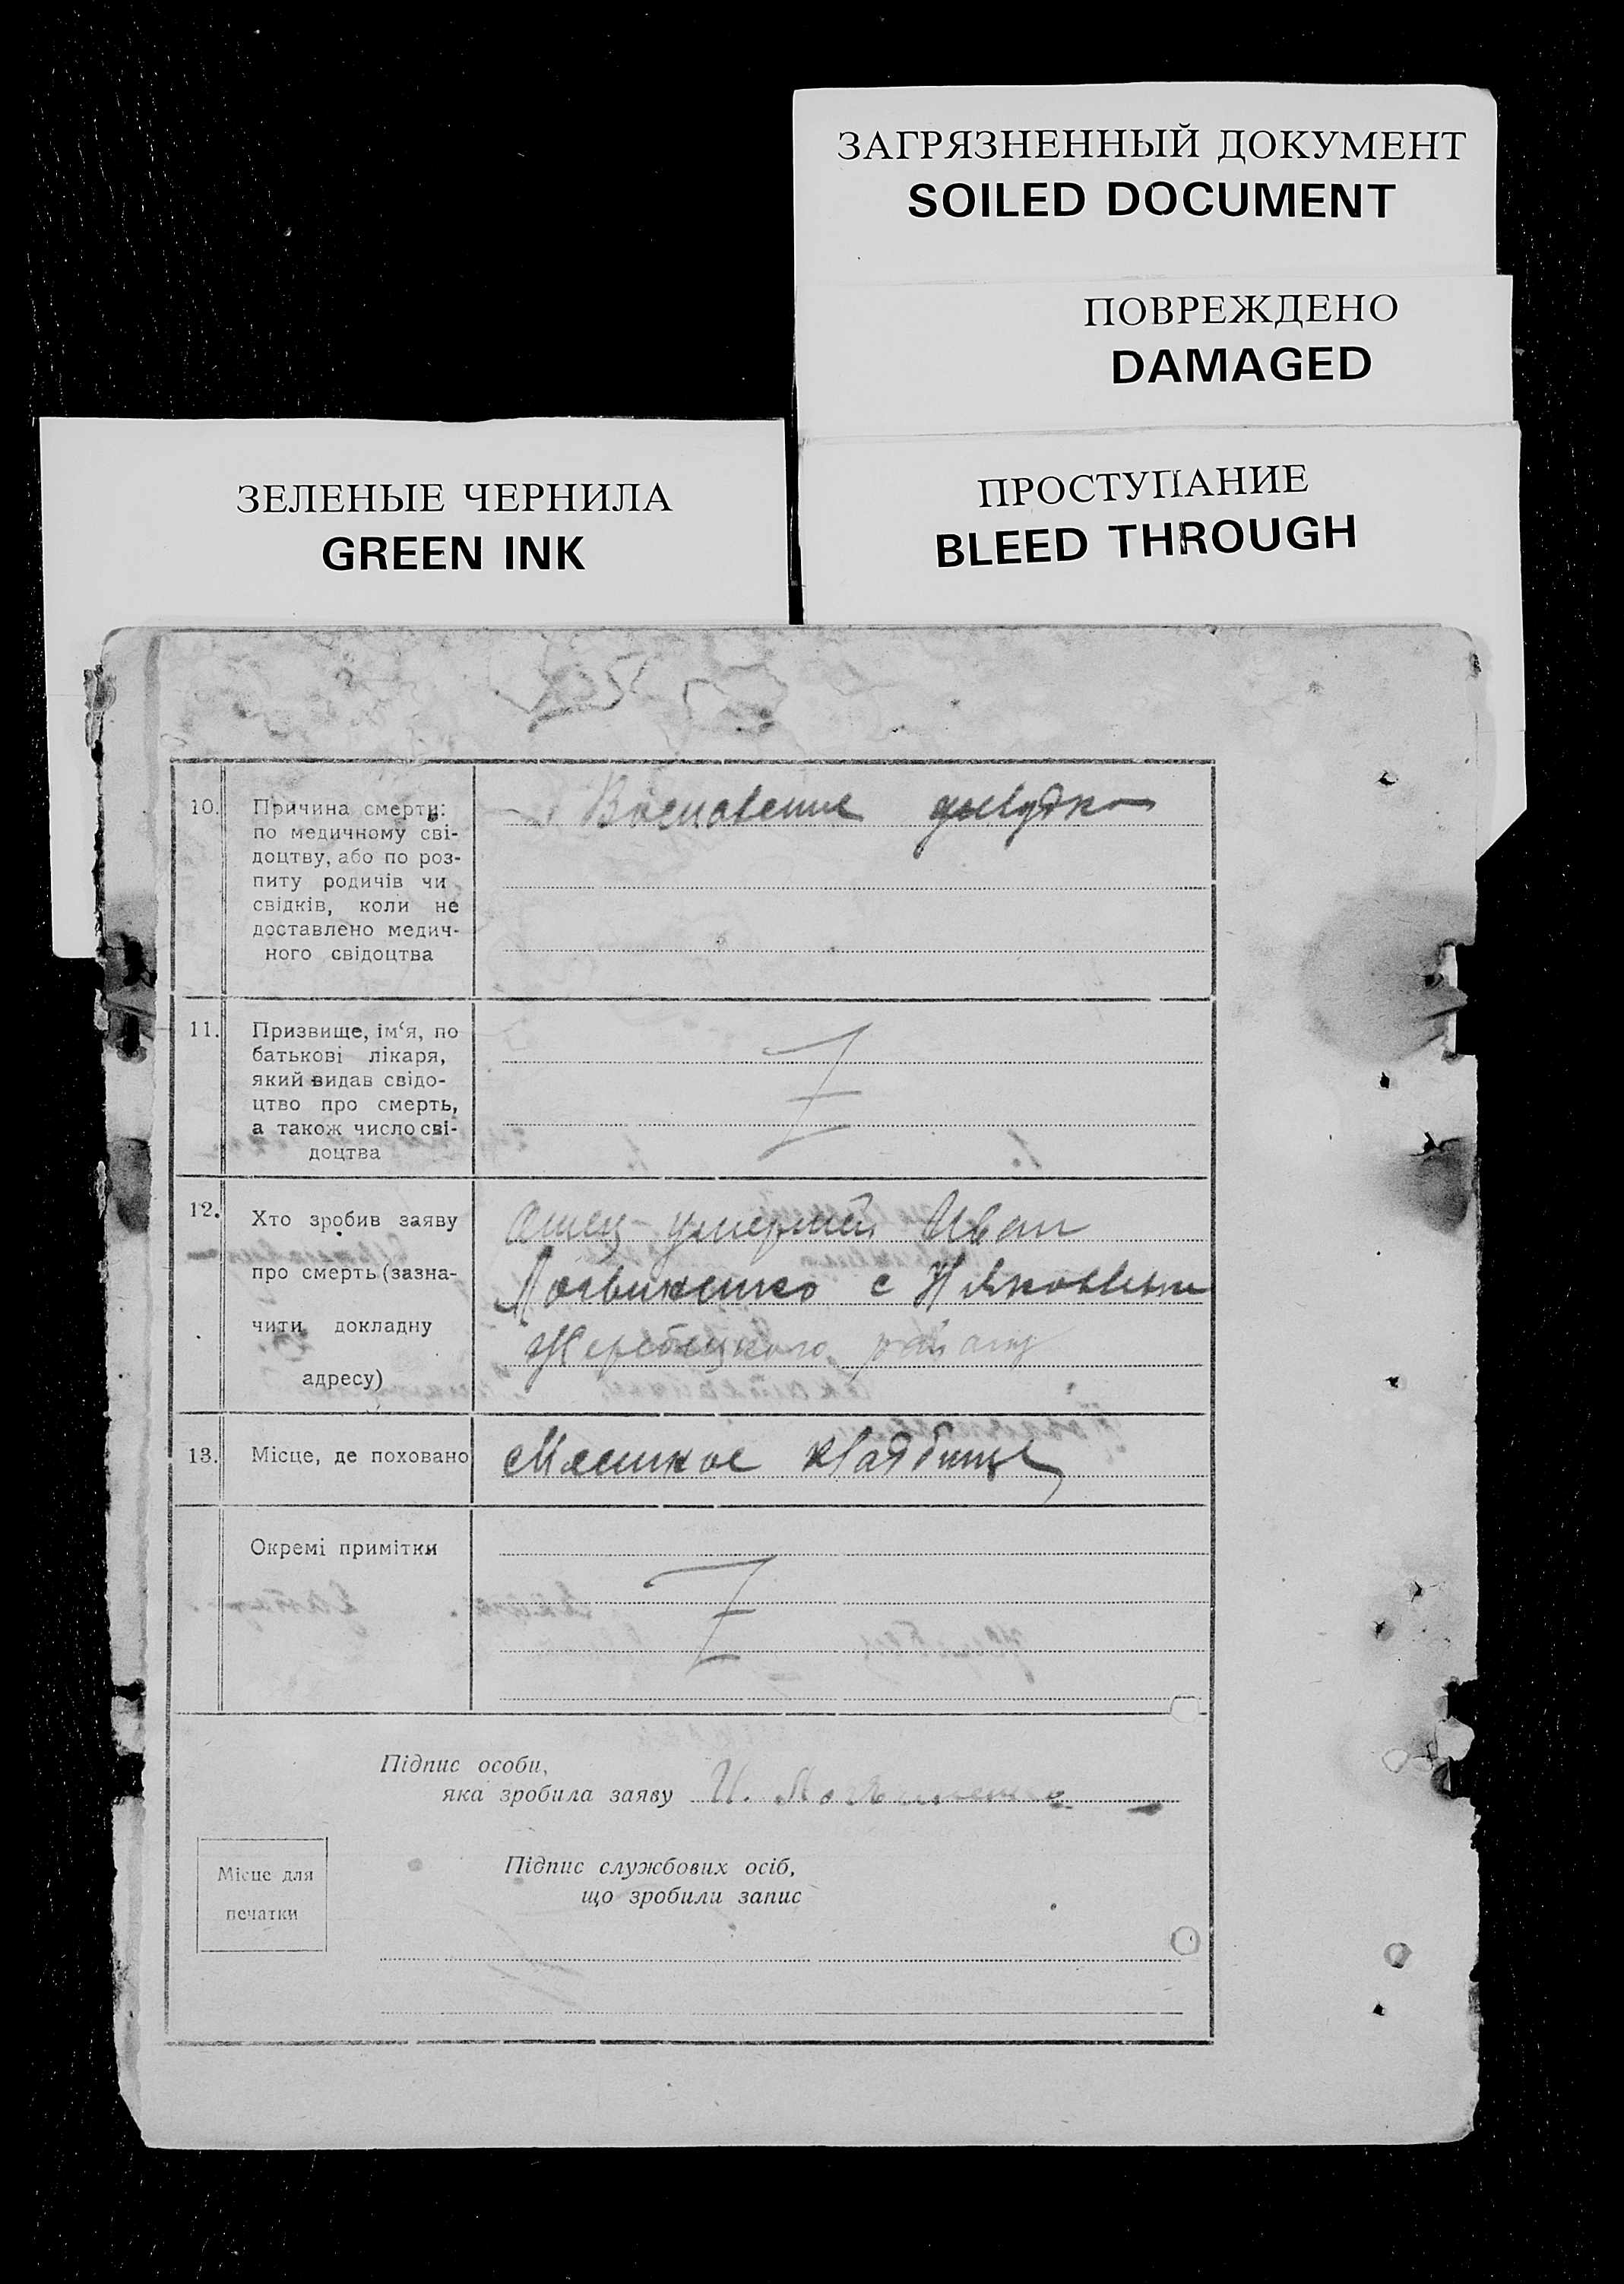 ЗАГРЯЗНЕННЫЙ ДОКУМЕНТ
SOILED DOCUMENT
ПОВРЕЖДЕНО
DAMAGED
ПРОСТУПАНИЕ
BLEED THROUGH
ЗЕЛЕНЫЕ ЧЕРНИЛА
GREEN INK
10.
Причина смерти:
по медичному сві-
доцтву, або по роз-
питу родичів чи
свідків, коли не
доставлено медич-
ного свідоцтва
желудка
11.
Призвище, ім‘я, по
батькові лікаря,
який видав свідо-
цтво про смерть,
а також число сві-
доцтва
12.
Хто зробив заяву
про смерть (зазна-
чити докладну
адресу)
Отец умершей Иван
Логвиненко с Н Яковлевки
Жеребецкого району
13.
Місце, де поховано
Местное кладбище
Окремі примітки
Підпис особи,
яка зробила заяву И. Логвиненко
Підпис службових осіб,
що зробили запис
Місце для
печатки